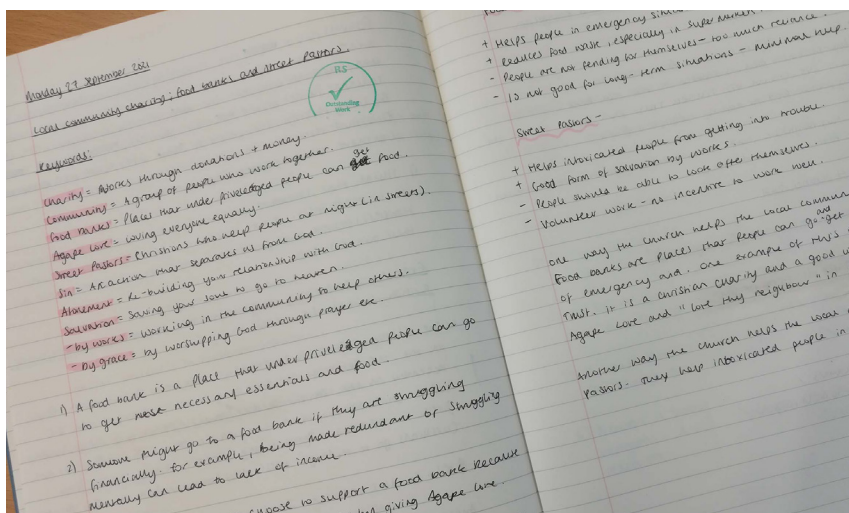 Monday 27 September 2021
Local community charity; food banks and street Pastors.
RS
Outstanding
Work
Keywords:
Charity = Works through donations + money.
Community = A group of people who work together.
get
Food banks = Places that under priveledged people can food.
Agape Love = Loving everyone equally.
Street Pastors = Christians who help people at night (in streets).
Sin = An action that separates us from God.
Atonement = Re-building your relationship with God.
Salvation = Saving your soul to go to heaven.
- by works = working in the community to help others.
- by grace = by worshipping God through prayer etc.
1) A food bank is a place that under priveledged people can go
to get necessary essentials and food.
2) Someone might go to a food bank if they are struggling
financially. for example, being made redundant or struggling
mentally can lead to lack of income.
choose to support a food bank because
giving Agape love.
+ Helps people in emergency
+ Reduces food waste, especially in supermarkets.
- People are not fending for themselves - too much reliance.
- Is not good for long-term situations - minimal help.
Street Pastors -
+ Helps intoxicated people from getting into trouble.
+ Good form of salvation by works.
- People should be able to look after themselves.
- Volunteer work - no incentive to work well.
One way the church helps the local
and
Food banks are places that people can go get
of emergency and. one example of this
Trust. it is a christian charity and a good
Agape Love and "Love thy neighbour" in
Another way the church helps the local
Pastors - They help intoxicated people in